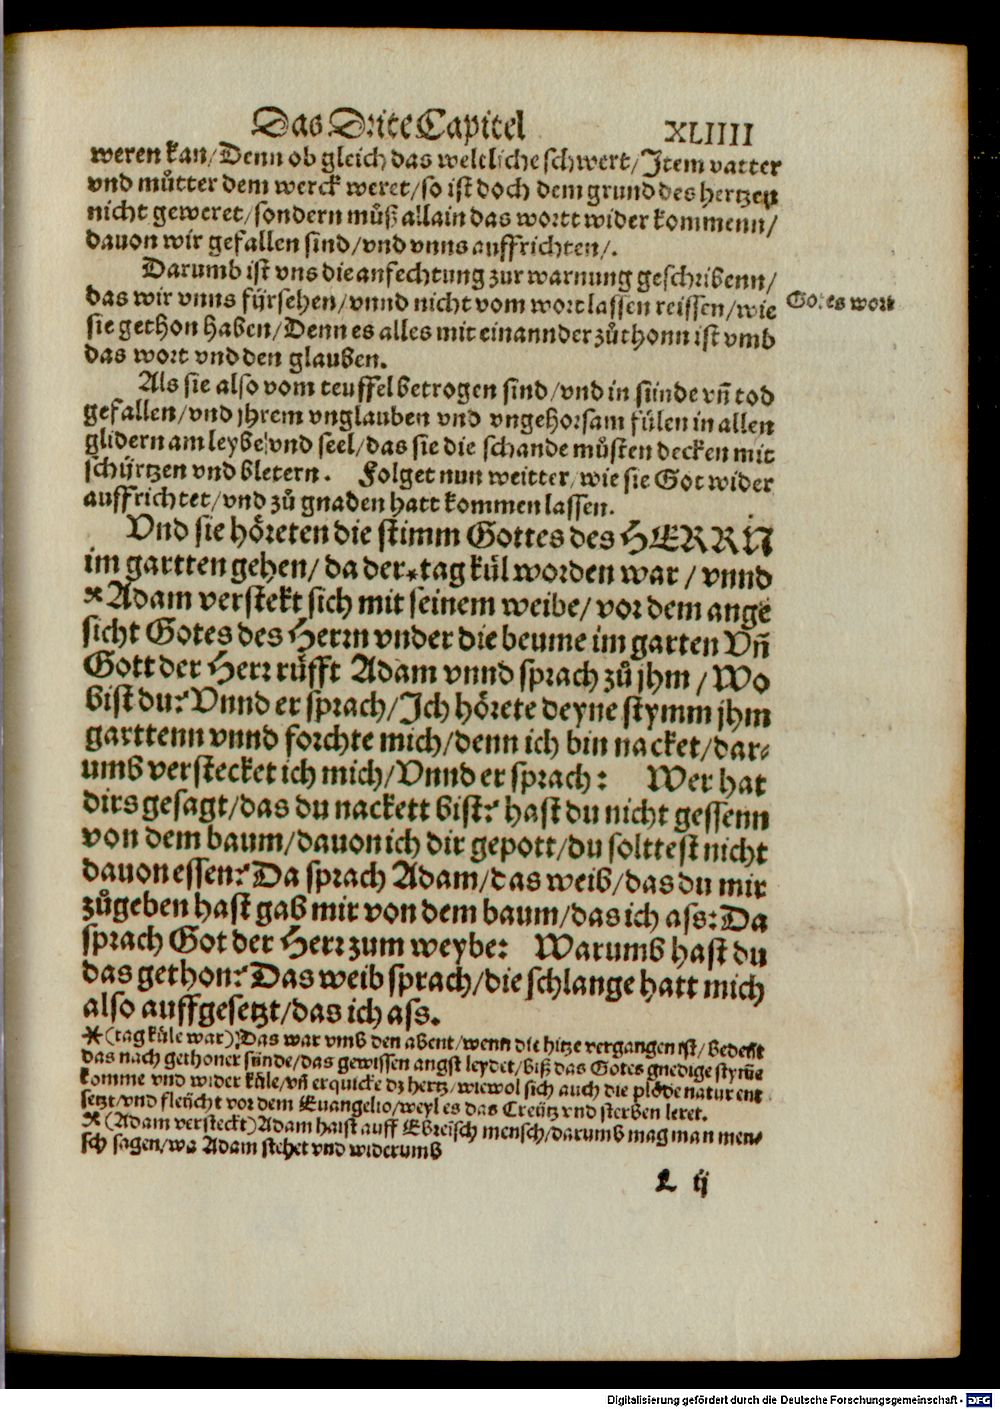 Das Drite Capitel XLIIII
weren kan/Denn ob gleich das weltliche schwert/Item vatter
vnd můtter dem werck weret/so ist doch dem grund des hertzen
nicht geweret/sondern můß allain das wortt wider kommenn/
dauon wir gefallen sind/vnd vnns auffrichten/.
Darumb ist vns die anfechtung zur warnung geschribenn/
das wir vnns fürsehen/vnnd nicht vom wort lassen reissen/wie
Gotes wort
sie gethon haben/Denn es alles mit einannder zůthonn ist vmb
das wort vnd den glauben.
Als sie also vom teuffel betrogen sind/vnd in sünde vñ tod
gefallen/vnd jhrem vnglauben vnd vngehorsam fülen in allen
glidern am leybe/vnd seel/das sie die schande můsten decken mit
schürtzen vnd bletern. Folget nun weitter/wie sie Got wider
auffrichtet/vnd zů gnaden hatt kommen lassen.
Vnd sie höreten die stimm Gottes des HERRN
im gartten gehen/da der *tag kül worden war/vnnd
*Adam verstekt sich mit seinem weibe/vor dem ange
sicht Gotes des Herrn vnder die beume im garten Vñ
Gott der Herr růfft Adam vnnd sprach zů jhm/Wo
bist du? Vnnd er sprach/Ich hörete deyne stymm jhm
garttenn vnnd forchte mich/denn ich bin nacket/dar-
umb verstecket ich mich/Vnnd er sprach: Wer hat
dirs gesagt/das du nackett bist? hast du nicht gessenn
von dem baum/dauon ich dir gepott/du solttest nicht
dauon essen? Da sprach Adam/das weib/das du mir
zůgeben hast gab mir von dem baum/das ich ass: Da
sprach Got der Herr zum weybe: Warumb hast du
das gethon? Das weib sprach/die schlange hatt mich
also auffgesetzt/das ich ass.
*(tag küle war) Das war vmb den abent/wenn die hitze vergangen ist/bedeüt
das nach gethoner sünde/das gewissen angst leydet/biß das Gotes gnedige stym̃e
komme vnd wider küle/vñ erquicke dz hertz/wiewol sich auch die plöde natur ent
setzt/vnd fleücht vor dem Euangelio/weyl es das Creütz vnd sterben leret.
*(Adam versteckt) Adam haist auff Ebreisch mensch/darumb mag man men-
sch sagen/wa Adam stehet vnd widerumb
L ij
Digitalisierung gefördert durch die Deutsche Forschungsgemeinschaft - DFG